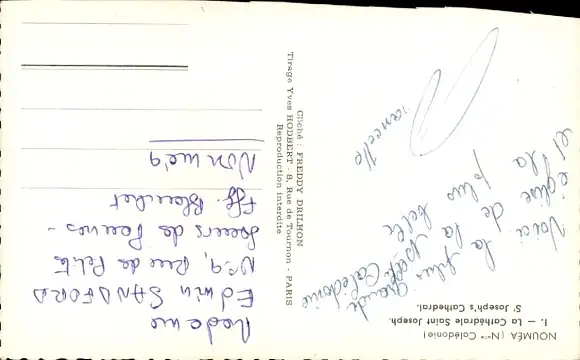 NOUMÉA (Nlle Calédonie)
1. — La Cathédrale Saint Joseph.
St Joseph's Cathedral.
Voici la plus grande
église de la Calédonie
et la plus belle
Cliché : FREDDY DRILHON
Tirage Yves HODBERT - 8, Rue de Tournon - PARIS
Reproduction interdite
Madame
Edwin SANDFORD
N° 9, Rue de
Soeurs de
Nouméa